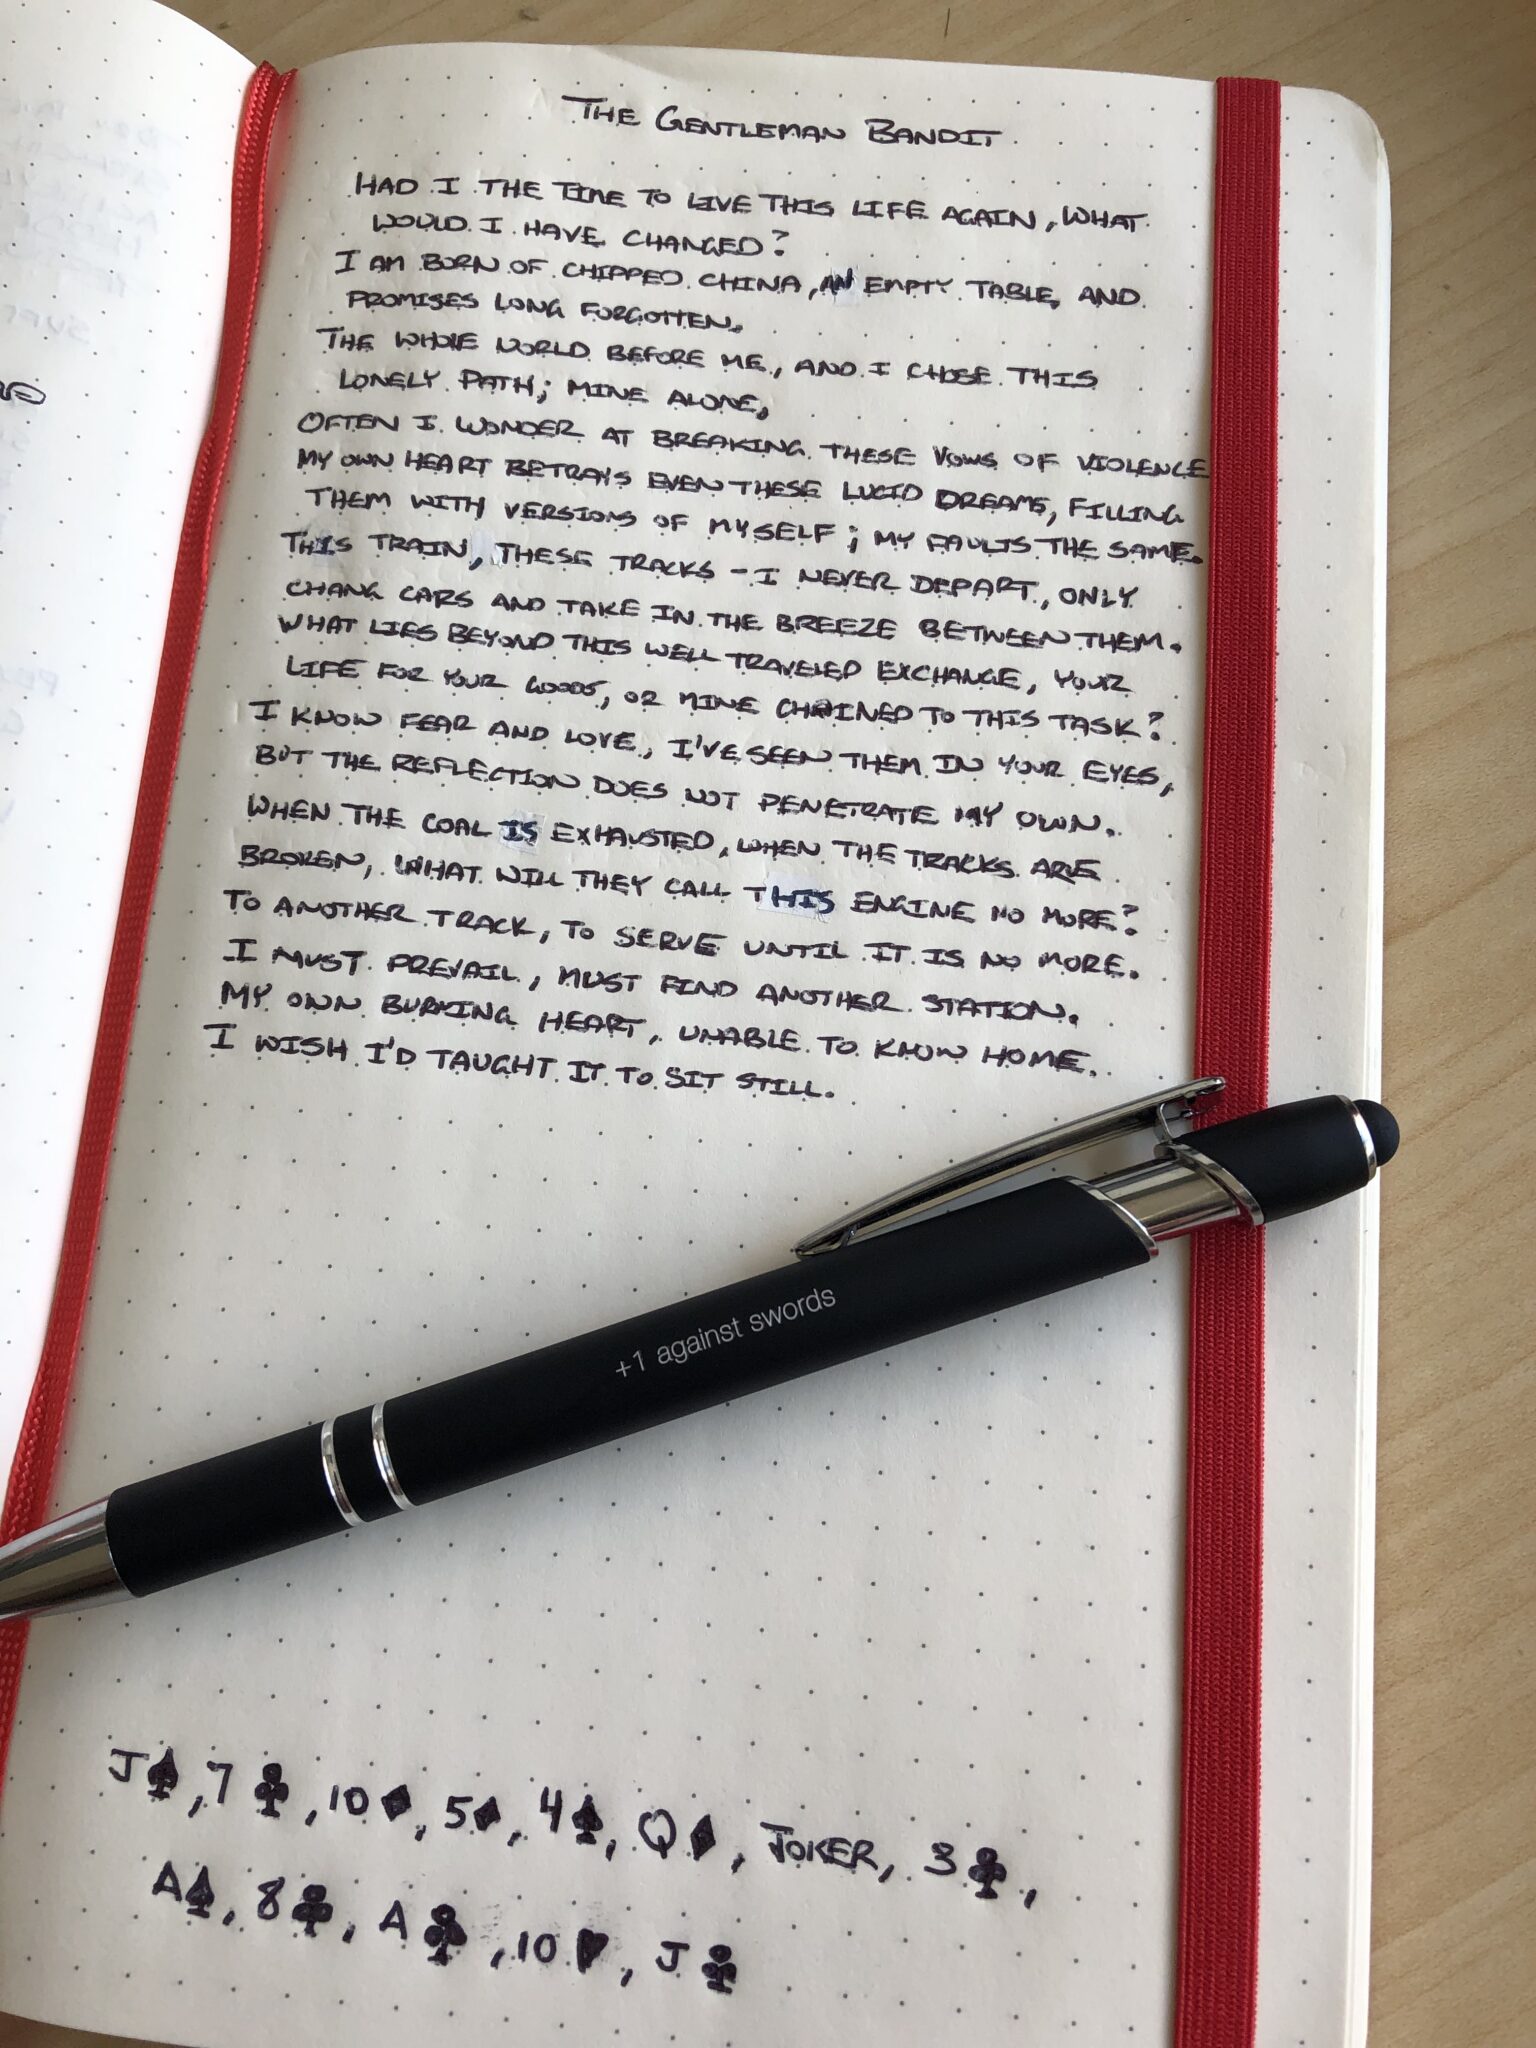 THE GENTLEMAN BANDIT
HAD I THE TIME TO LIVE THIS LIFE AGAIN, WHAT
WOULD I HAVE CHANGED?
I AM BORN OF CHIPPED CHINA, AN EMPTY TABLE, AND
PROMISES LONG FORGOTTEN.
THE WHOLE WORLD BEFORE ME, AND I CHOSE THIS
LONELY PATH; MINE ALONE.
OFTEN I WONDER AT BREAKING THESE VOWS OF VIOLENCE
MY OWN HEART BETRAYS EVEN THESE LUCID DREAMS, FILLING
THEM WITH VERSIONS OF MYSELF; MY FAULTS THE SAME.
THIS TRAIN, THESE TRACKS - I NEVER DEPART, ONLY
CHANG CARS AND TAKE IN THE BREEZE BETWEEN THEM.
WHAT LIES BEYOND THIS WELL TRAVELED EXCHANGE, YOUR
LIFE FOR YOUR GOODS, OR MINE CHAINED TO THIS TASK?
I KNOW FEAR AND LOVE, I'VE SEEN THEM IN YOUR EYES,
BUT THE REFLECTION DOES NOT PENETRATE MY OWN.
WHEN THE COAL IS EXHAUSTED, WHEN THE TRACKS ARE
BROKEN, WHAT WILL THEY CALL THIS ENGINE NO MORE?
TO ANOTHER TRACK, TO SERVE UNTIL IT IS NO MORE.
I MUST PREVAIL, MUST FIND ANOTHER STATION.
MY OWN BURNING HEART, UNABLE TO KNOW HOME.
I WISH I'D TAUGHT IT TO SIT STILL.
+1 against swords
J♠, 7♣, 10♦, 5♦, 4♠, Q♦, JOKER, 3♣,
A♠, 8♣, A♣, 10♥, J♣